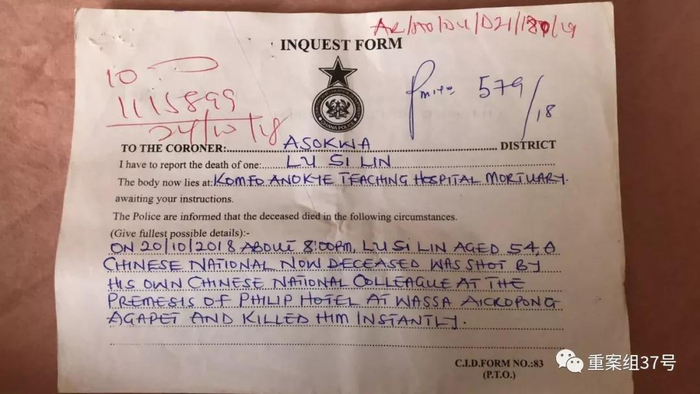 AR/AO/04/D21/180/19
INQUEST FORM
10
1115899
24/10/18
579/18
TO THE CORONER: ASOKWA DISTRICT
I have to report the death of one: LU SI LIN
The body now lies at: KOMFO ANOKYE TEACHING HOSPITAL MORTUARY.
awaiting your instructions.
The Police are informed that the deceased died in the following circumstances.
(Give fullest possible details):-
ON 20/10/2018 ABOUT 8:00PM, LU SI LIN AGED 54, A
CHINESE NATIONAL NOW DECEASED WAS SHOT BY
HIS OWN CHINESE NATIONAL COLLEAGUE AT THE
PREMESIS OF PHILIP HOTEL AT WASSA AICROPONG
AGAPET AND KILLED HIM INSTANTLY.
C.I.D.FORM NO.:83
(P.T.O.)
重案组37号